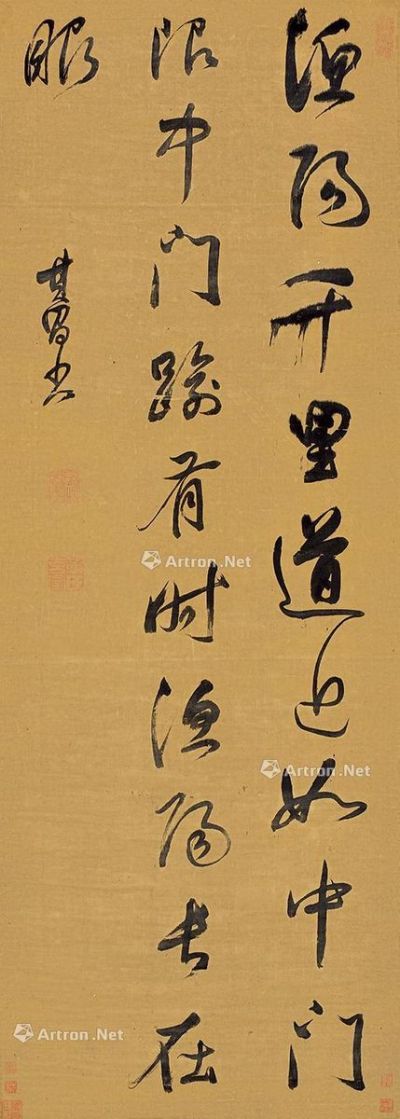 漁陽千里道近如中門
限中門踰有時漁陽長在
眼
其昌書
Artron.Net
Artron.Net
Artron.Net